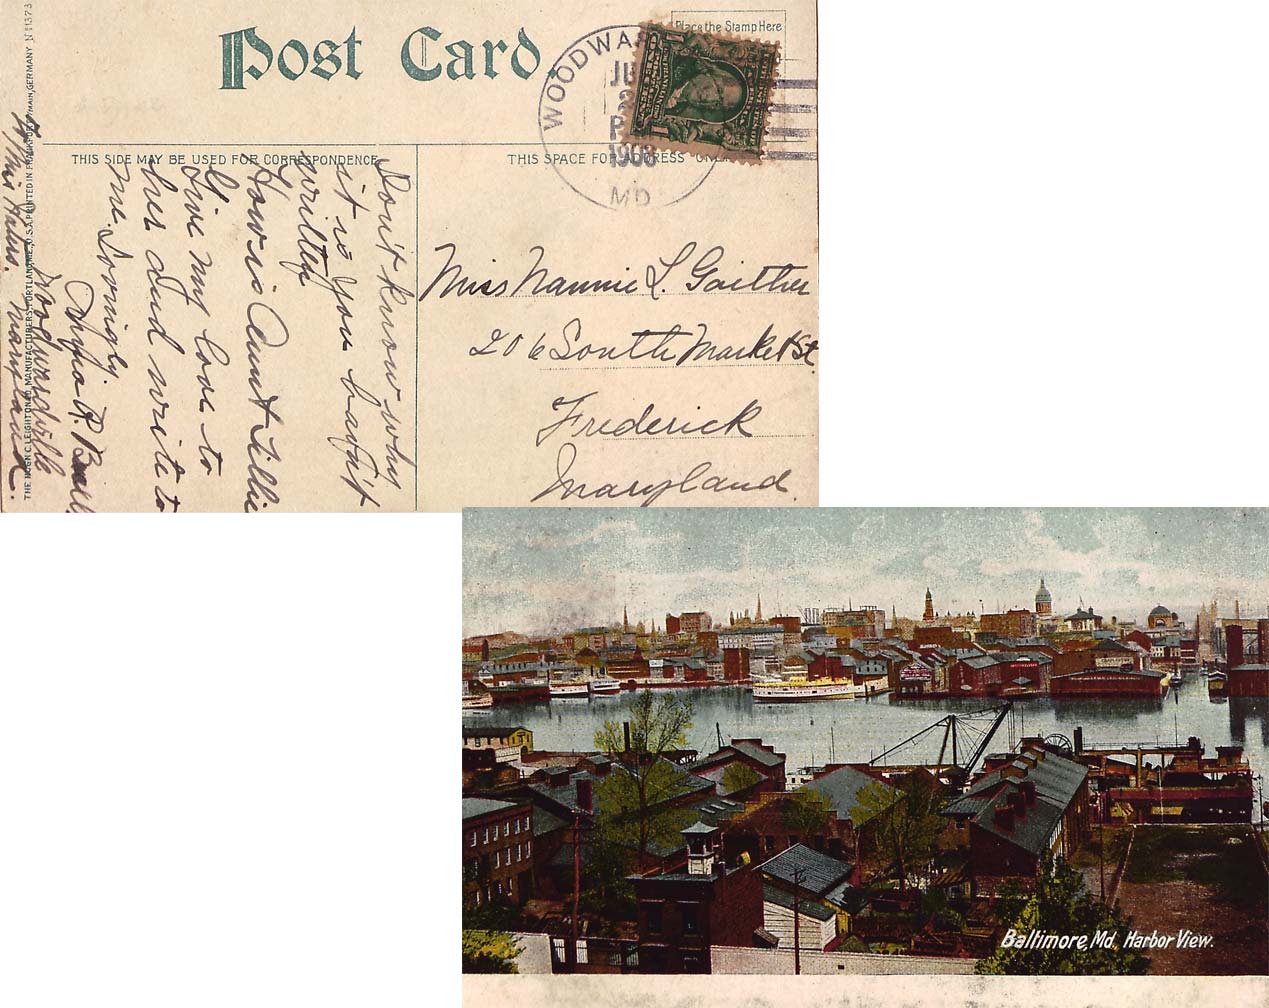 Post Card.
Place the Stamp Here
WOODWA
JU
2
P
1908
MD
THIS SIDE MAY BE USED FOR CORRESPONDENCE
THIS SPACE FOR ADDRESS ONL
Miss Nannie L. Gaither
206 South Market St
Frederick
Maryland.
Don't know why
it is you hav'nt
written
How is Aunt Lillie
Give my love to
her and write to
me. Lovingly
R. Buell
Woodwardville
Maryland.
THE HUGH C. LEIGHTON CO. MANUFACTURERS, PORTLAND, ME., U.S.A. PRINTED IN FRANKFORT MAIN, GERMANY N 11373
Baltimore, Md. Harbor View.